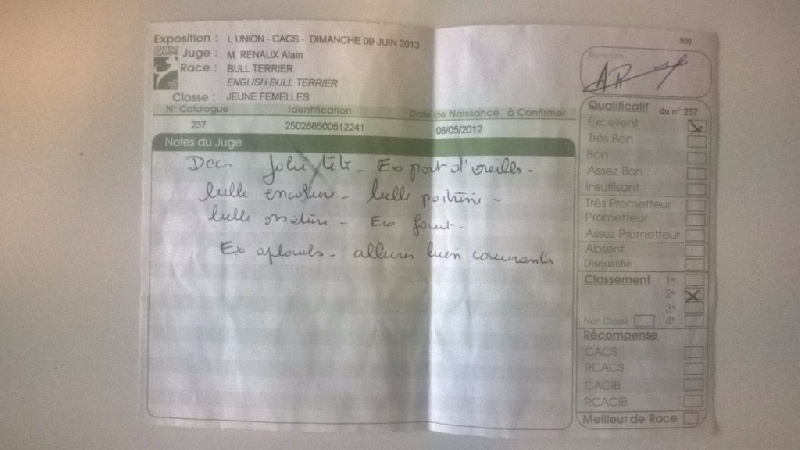 Exposition : L UNION - CACS - DIMANCHE 09 JUIN 2013
Juge : M. RENAUX Alain
Race : BULL TERRIER
ENGLISH BULL TERRIER
Classe : JEUNE FEMELLES
N° Catalogue Identification Date de Naissance à Confirmer
237 250268500512241 08/05/2012
Notes du Juge
Jolie tête - Ex port d'oreilles -
belle encolure - belle poitrine -
belle ossature - Ex fouet.
Ex aplombs - allures bien courants
AR
Qualificatif du n° 237
Excellent
Très Bon
Bon
Assez Bon
Insuffisant
Très Prometteur
Prometteur
Assez Prometteur
Absent
Disqualifié
Classement 1°
2°
3°
Non Classé 4°
Récompense
CACS
RCACS
CACIB
RCACIB
Meilleur de Race